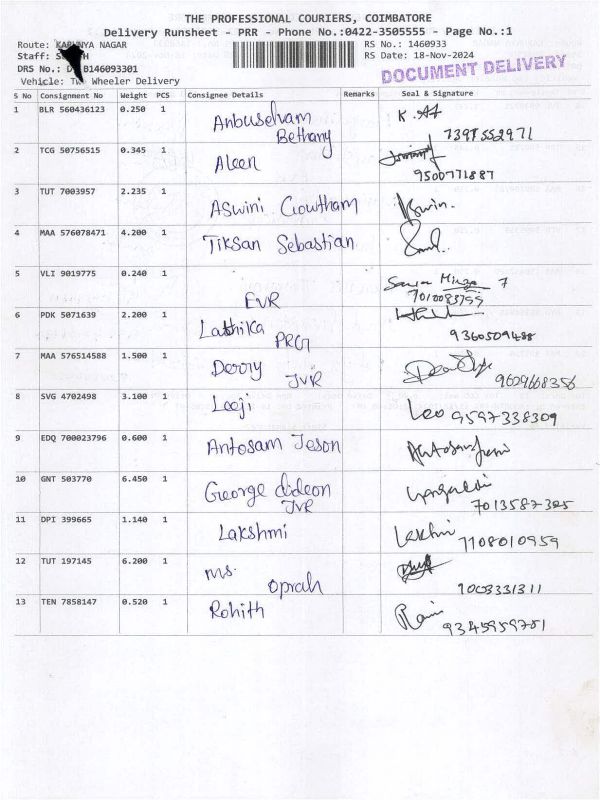 THE PROFESSIONAL COURIERS, COIMBATORE
Delivery Runsheet - PRR - Phone No.:0422-3505555 - Page No.:1
Route: KARUNYA NAGAR RS No.: 1460933
Staff: RS Date: 18-Nov-2024
DRS No.: B146093301 DOCUMENT DELIVERY
Vehicle: Wheeler Delivery
S No Consignment No Weight PCS Consignee Details Remarks Seal & Signature
1 BLR 560436123 0.250 1 Anbuselvam
Bethany 7397552971
2 TCG 50756515 0.345 1 Aleen
9500771887
3 TUT 7003957 2.235 1 Aswini Gowtham
4 MAA 576078471 4.200 1 Tiksan Sebastian
5 VLI 9019775 0.240 1
EVR
6 PDK 5071639 2.200 1 Lathika
PRG 9360509488
7 MAA 576514588 1.500 1 Derry
JVR 9629668356
8 SVG 4702498 3.100 1 Leeji Leo 9597338309
9 EDQ 700023796 0.600 1 Antosam Jeson
10 GNT 503770 6.450 1 George Gideon
JVR 7013587325
11 DPI 399665 1.140 1 Lakshmi
7108010959
12 TUT 197145 6.200 1 Ms.
Oprah
13 TEN 7858147 0.520 1 Rohith